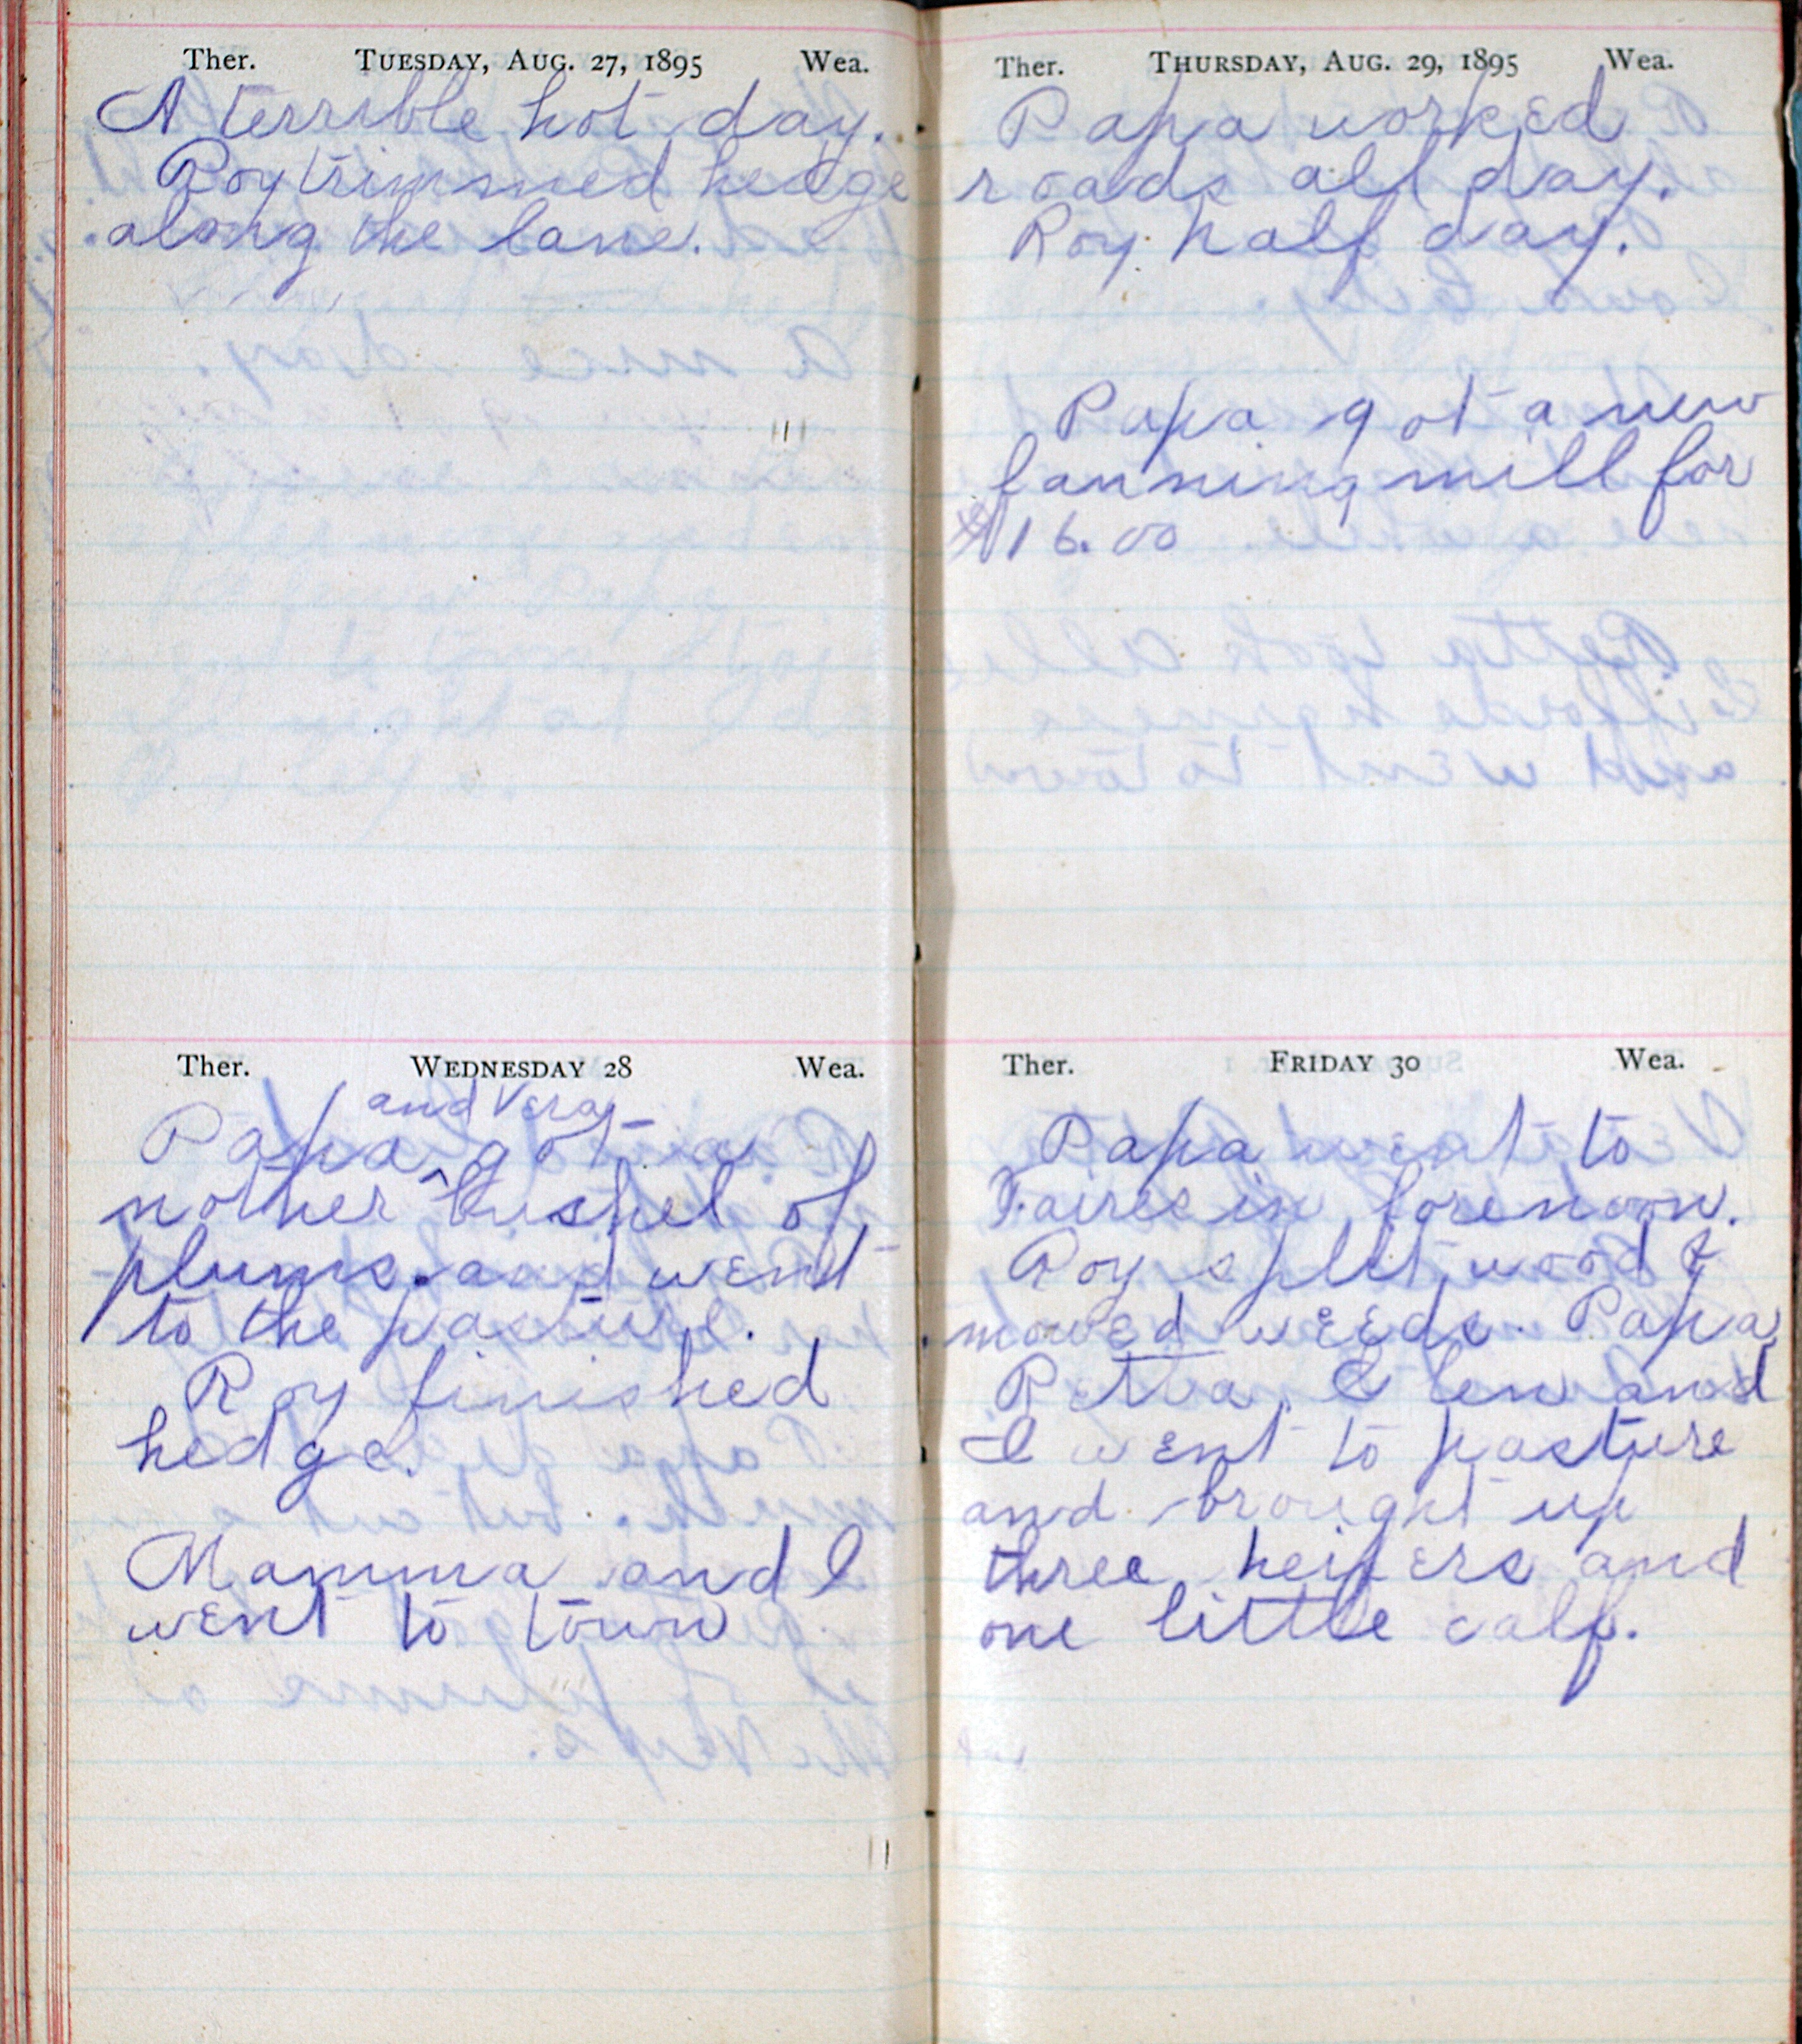 Ther. Tuesday, Aug. 27, 1895 Wea.
A terrible hot day.
Roy trimmed hedge
along the lane.
Ther. Wednesday 28 Wea.
and Vera
Papa ^ got a
nother bushel of
plums. and went
to the pasture.
Roy finished
hedge.
Mamma and I
went to town
Ther. Thursday, Aug. 29, 1895 Wea.
Papa worked
roads all day.
Roy half day.
Papa got a new
fanning mill for
$16.00
Ther. Friday 30 Wea.
Papa went to
Faires in forenoon.
Roy split wood &
mowed weeds. Papa
Retta, Glen and
I went to pasture
and brought up
three heifers and
one little calf.